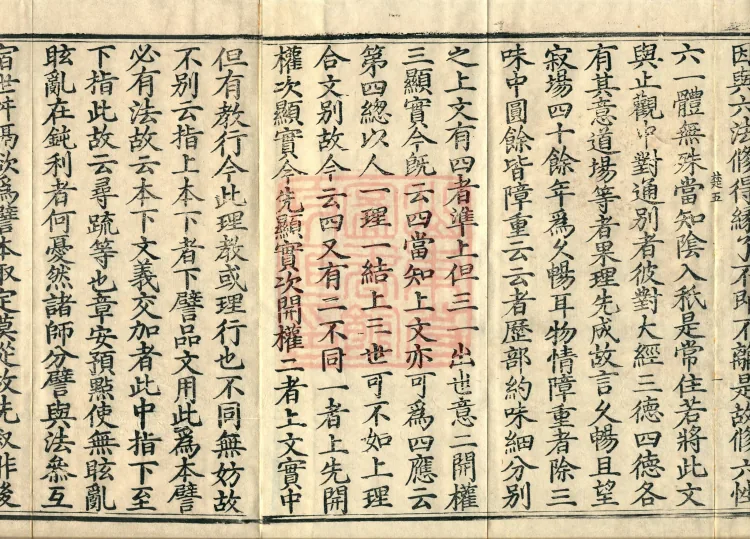 因與六法脩得緣了不即不離是故脩六性
六一體無殊當知陰入秖是常住若將此文
與止觀中對通別者彼對大經三德四德各
有其意道場等者果理先成故言久暢且望
寂場四十餘年爲久暢耳物情障重者除三
味中圓餘皆障重云云者歷部約味細分別
之上文有四者準上但三一出世意二開權
三顯實今旣云四當知上文亦可爲四應云
第四總以人一理一結上三世可不如上理
合文別故今云四又有二不同一者上先開
權次顯實今先顯實次開權二者上文實中
但有教行今此理教或理行也不同無妨故
不別云指上本下者下譬品文用此爲本譬
必有法故云本下文義交加者此中指下至
下指此故云尋疏等也章安預點使無眩亂
眩亂在鈍利者何憂然諸師分譬與法叅互
宿世
欲爲譬本取定莫從故先叙非後
楚五
一